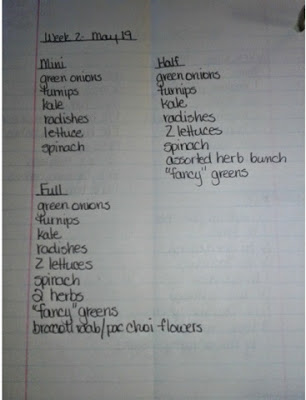 Week 2- May 19
Mini
green onions
turnips
kale
radishes
lettuce
spinach
Half
green onions
turnips
kale
radishes
2 lettuces
spinach
assorted herb bunch
"fancy" greens
Full
green onions
turnips
kale
radishes
2 lettuces
spinach
2 herbs
"fancy" greens
/pac choi-flowers